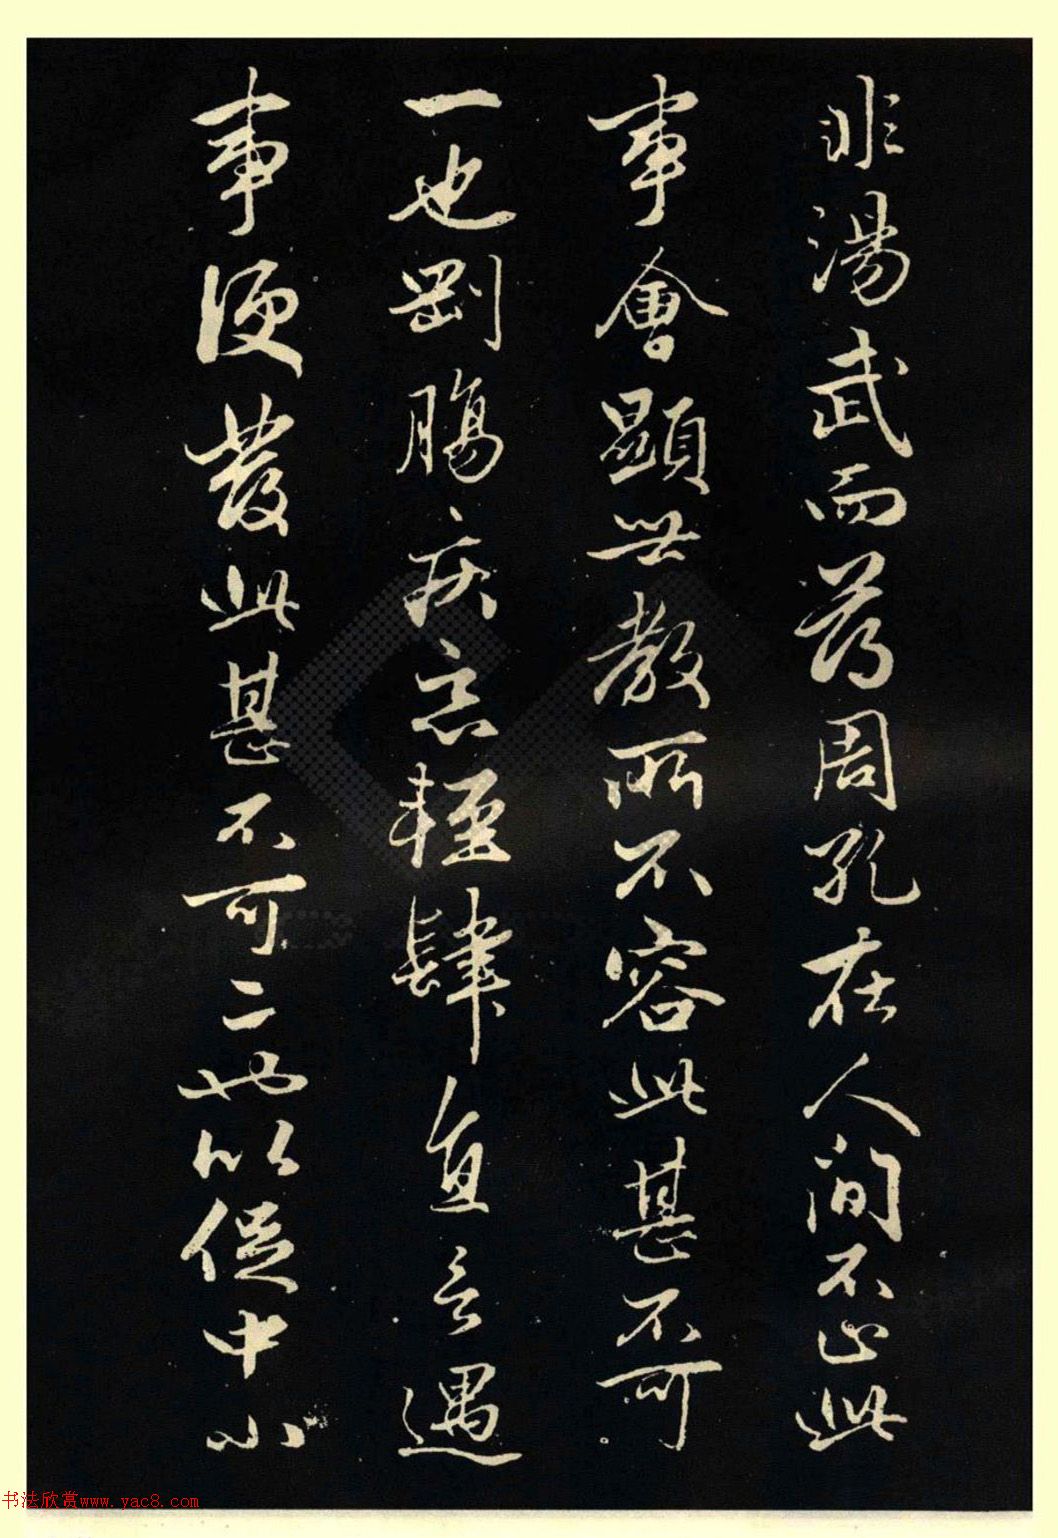 非湯武而薄周孔在人間不止此
事會顯世教所不容此甚不可
一也剛腸疾惡輕肆直言遇
事便發此甚不可二也以促中小
书法欣赏www.yac8.com